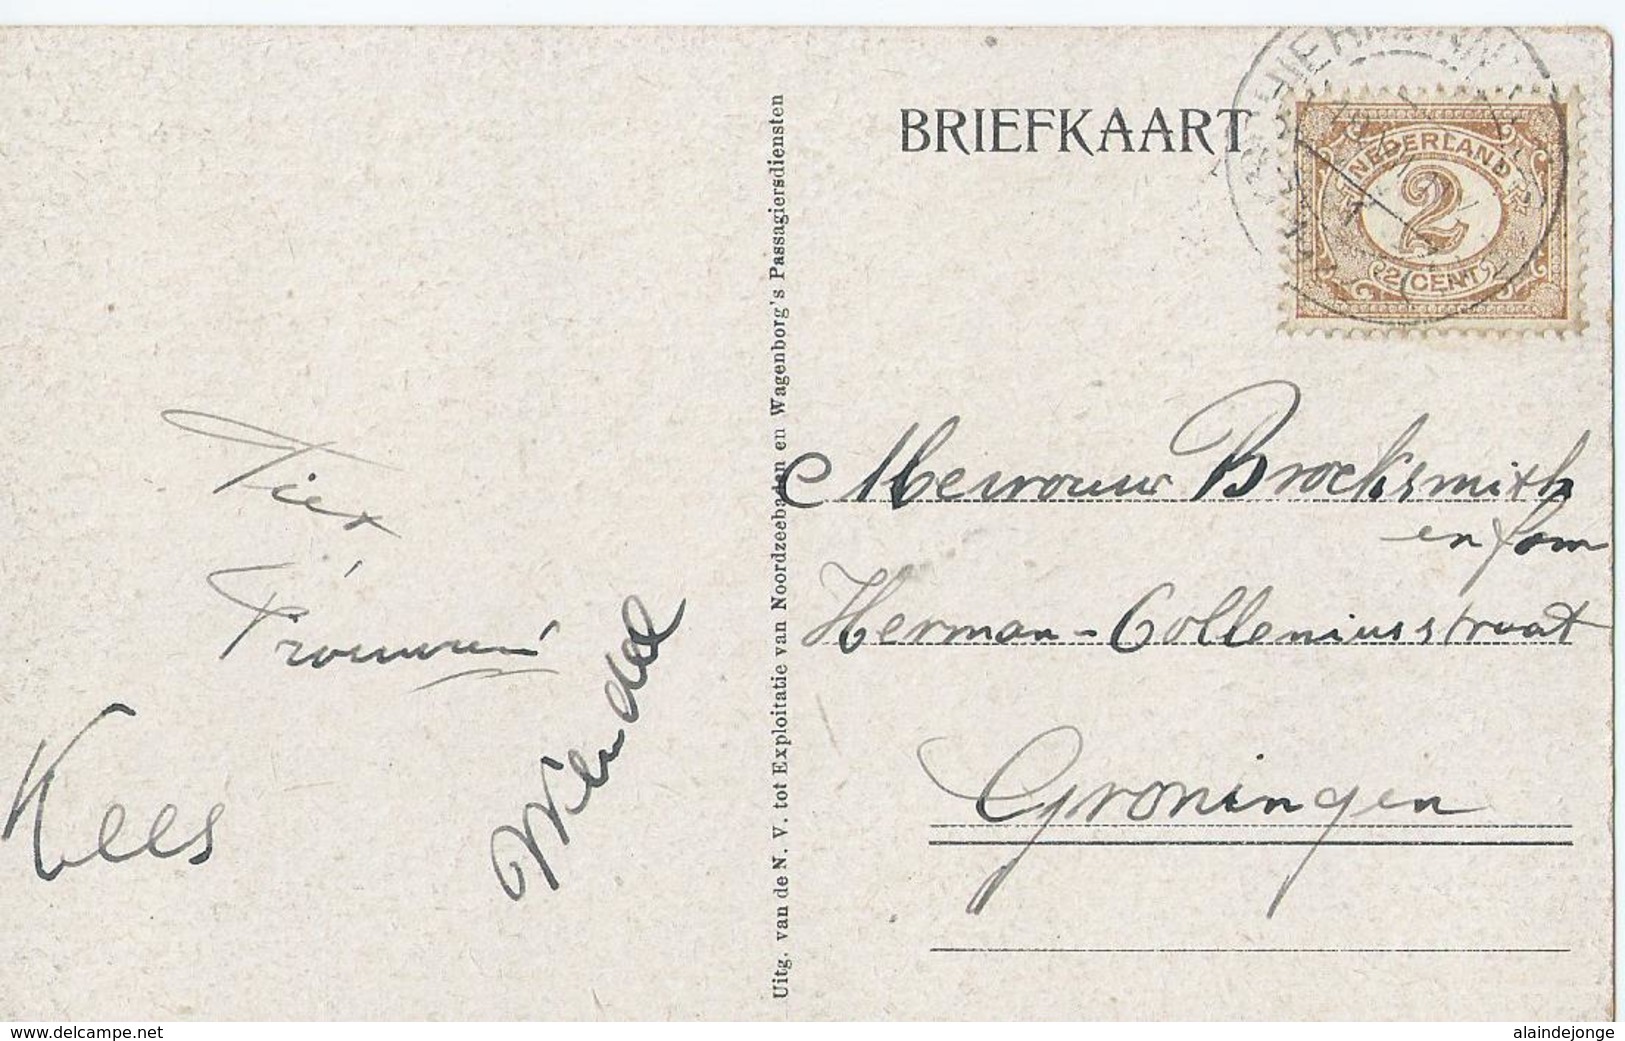 BRIEFKAART
NEDERLAND
2
2 CENT
Uitg. van de N. V. tot Exploitatie van Noordzeebaden en Wagenborg's Passagiersdiensten
Kees
Mevrouw Brocksmith
en fam
Herman-Colleniusstraat
Groningen
www.delcampe.net
alaindejonge